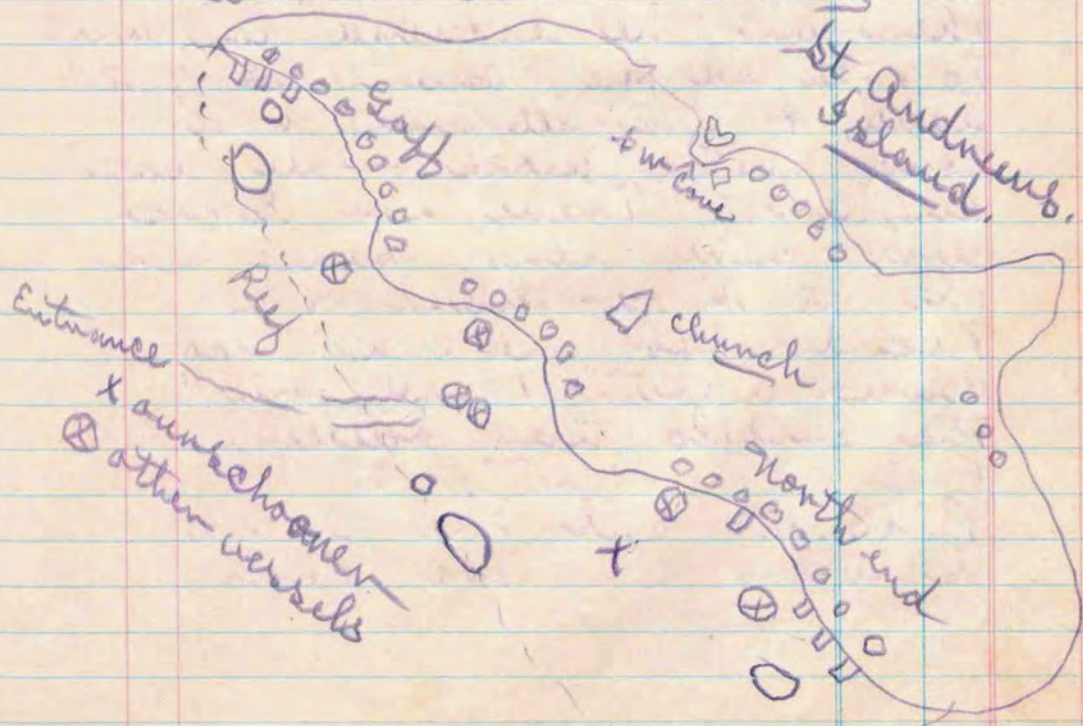 St Andrews.
Island.
Gaff
Cove
Reef
Church
Entrance
x our schooner
⊗ other vessels
North end